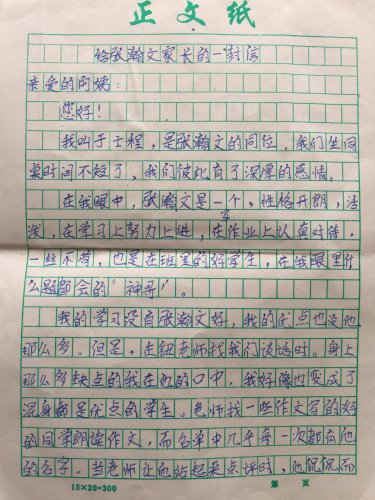 正文纸
给张瀚文家长的一封信
亲爱的阿姨：
您好！
我叫于士程，是张瀚文的同位，我们坐同
桌时间不短了，我们彼此有了深厚的感情。
在我眼中，张瀚文是一个，性格开朗，活
泼，在学习上努力上进，在作业上认真对待，
字
一丝不苟，也是在班里的好学生，在我眼里什
么题都会的“神哥”。
我的学习没有张瀚文好，我的优点也没他
那么多。但是，在纽老师找我们谈话时。身上
那么多缺点的我在他的口中，我好像也变成了
浑身都是优点的学生。老师找一些作文写的好
的同学朗读作文，而名单中几乎每一次都有他
的名字。当老师让他站起来点评时，他侃侃而
15×20=300
第 页